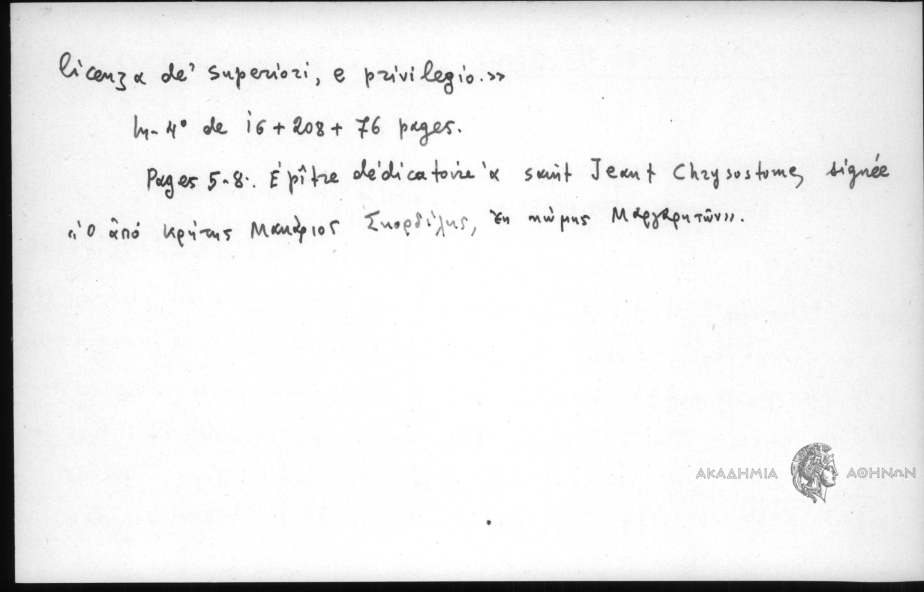 licenza de' superiori, e privilegio.»
In-4° de 16 + 208 + 76 pages.
Pages 5-8. Epître dédicatoire à saint Jeant Chrysostome, signée
«ὁ ἀπό Κρήτης Μακάριος Σκορδίλης, ἐκ κώμης Μαργαρητῶν».
ΑΚΑΔΗΜΙΑ ΑΘΗΝΩΝ